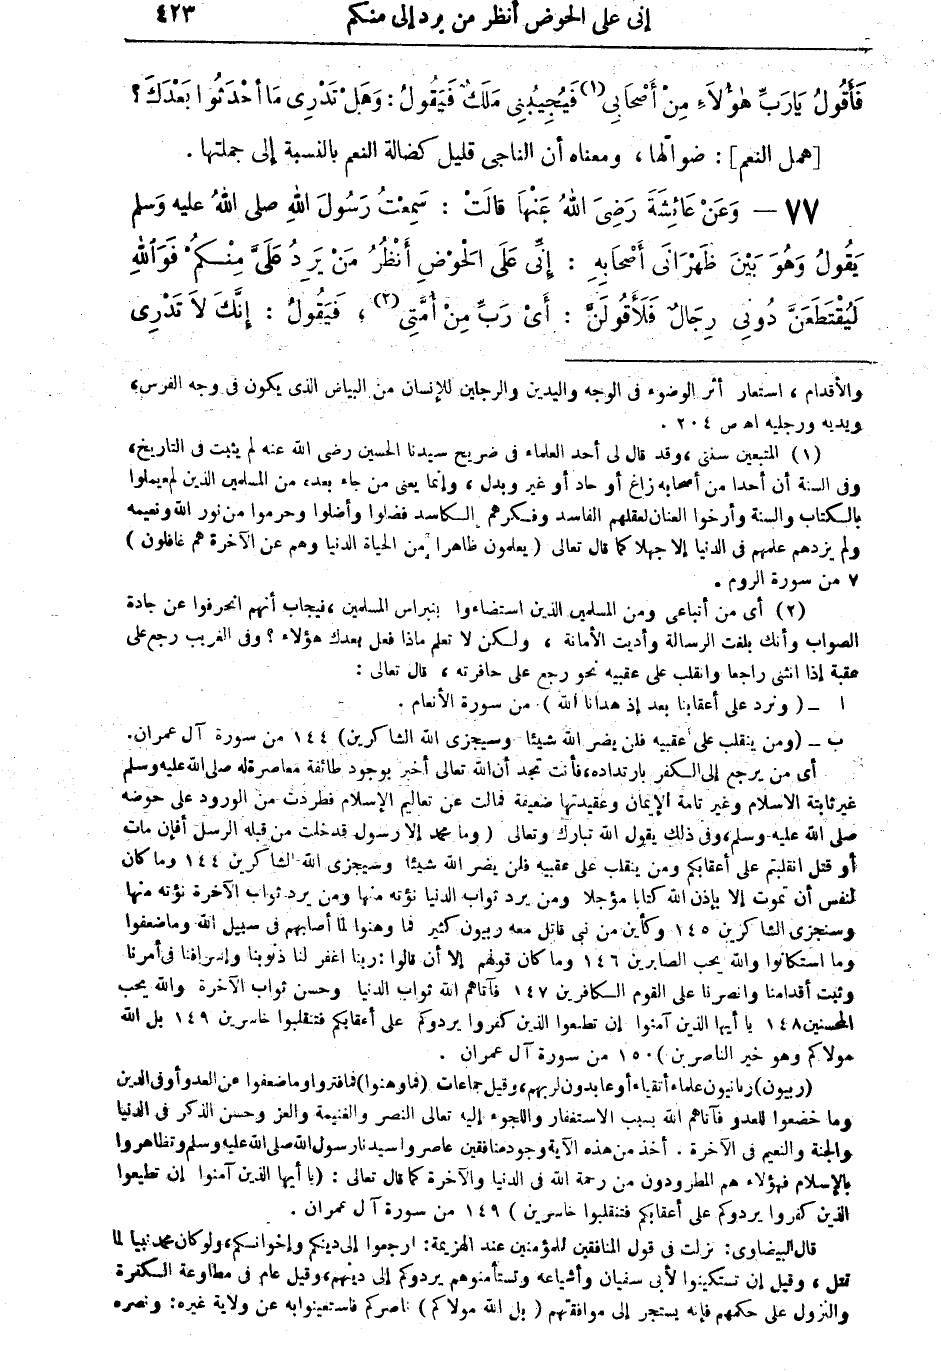 إنى على الحوض أنظر من يرد إلى منكم ٤٢٣
فَأَقُولُ يَارَبِّ هٰؤُلَاءِ مِنْ أَصْحَابِى (١) فَيُجِيبُنِى مَلَكٌ فَيَقُولُ : وَهَلْ تَدْرِى مَا أَحْدَثُوا بَعْدَكَ ؟
[همل النعم] : ضوالّها ، ومعناه أن الناجى قليل كضالة النعم بالنسبة إلى جملتها .
٧٧ — وَعَنْ عَائِشَةَ رَضِىَ اللهُ عَنْهَا قالَتْ : سَمِعْتُ رَسُولَ اللهِ صلى اللهُ عليه وَسلم
يَقُولُ وَهُوَ بَيْنَ ظَهْرَانَى أَصْحَابِهِ : إِنِّى عَلَى الحَوْضِ أَنْظُرُ مَنْ يَرِدُ عَلَىَّ مِنْكُمْ فَوَاللهِ
لَيُقْتَطَعَنَّ دُونِى رِجَالٌ فَلَأَقُولَنَّ : أَىْ رَبِّ مِنْ أُمَّتِى (٢) ، فَيَقُولُ : إِنَّكَ لاَ تَدْرِى
والأقدام ، استعار أثر الوضوء فى الوجه واليدين والرجلين للإنسان من البياض الذى يكون فى وجه الفرس،
ويديه ورجليه اه ص ٢٠٤ .
(١) المتبعين سنتى ، وقد قال لى أحد العلماء فى ضريح سيدنا الحسين رضى الله عنه لم يثبت فى التاريخ،
وفى السنة أن أحدا من أصحابه زاغ أو حاد أو غير وبدل ، وإنما يعنى من جاء بعده من المسلمين الذين لم يعملوا
بالكتاب والسنة وأرخوا العنان لعقلهم الفاسد وفكرهم الكاسد فضلوا وأضلوا وحرموا من نور الله ونعيمه
ولم يزدهم علمهم فى الدنيا إلا جهلا كما قال تعالى ( يعلمون ظاهرا من الحياة الدنيا وهم عن الآخرة هم غافلون )
٧ من سورة الروم .
(٢) أى من أتباعى ومن المسلمين الذين استضاءوا بنبراس المسلمين ، فيجاب أنهم انحرفوا عن جادة
الصواب وأنك بلغت الرسالة وأديت الأمانة ، ولكن لا تعلم ماذا فعل بعدك هؤلاء ؟ وفى الغريب رجع على
عقبة إذا انثنى راجعا وانقلب على عقبيه نحو رجع على حافرته ، قال تعالى :
ا ــ ( ونرد على أعقابنا بعد إذ هدانا الله ) من سورة الأنعام .
ب ــ (ومن ينقلب على عقبيه فلن يضر الله شيئا وسيجزى الله الشاكرين) ١٤٤ من سورة آل عمران.
أى من يرجع إلى الكفر بارتداده، فأنت تجد أن الله تعالى أخبر بوجود طائفة معاصرة له صلى الله عليه وسلم
غير ثابتة الاسلام وغير تامة الإيمان وعقيدتها ضعيفة فمالت عن تعاليم الإسلام فطردت من الورود على حوضه
صلى الله عليه وسلم، وفى ذلك يقول الله تبارك وتعالى ( وما محمد إلا رسول قد خلت من قبله الرسل أفإن مات
أو قتل انقلبتم على أعقابكم ومن ينقلب على عقبيه فلن يضر الله شيئا وسيجزى الله الشاكرين ١٤٤ وما كان
لنفس أن تموت إلا بإذن الله كتابا مؤجلا ومن يرد ثواب الدنيا نؤته منها ومن يرد ثواب الآخرة نؤته منها
وسنجزى الشاكرين ١٤٥ وكأين من نبى قاتل معه ربيون كثير فما وهنوا لما أصابهم فى سبيل الله وما ضعفوا
وما استكانوا والله يحب الصابرين ١٤٦ وما كان قولهم إلا أن قالوا : ربنا اغفر لنا ذنوبنا وإسرافنا فى أمرنا
وثبت أقدامنا وانصرنا على القوم الكافرين ١٤٧ فآتاهم الله ثواب الدنيا وحسن ثواب الآخرة والله يحب
المحسنين ١٤٨ يا أيها الذين آمنوا إن تطيعوا الذين كفروا يردوكم على أعقابكم فتنقلبوا خاسرين ١٤٩ بل الله
مولاكم وهو خير الناصرين ) ١٥٠ من سورة آل عمران .
(ربيون) ربانيون علماء أتقياء أو عابدون لربهم، وقيل جماعات (فما وهنوا) فما فتروا وما ضعفوا عن العدو أو فى الدين
وما خضعوا للعدو فآتاهم الله بسبب الاستغفار واللجوء إليه تعالى النصر والغنيمة والعز وحسن الذكر فى الدنيا
والجنة والنعيم فى الآخرة . أخذ من هذه الآية وجود منافقين عاصروا سيدنا رسول الله صلى الله عليه وسلم وتظاهروا
بالإسلام فهؤلاء هم المطرودون من رحمة الله فى الدنيا والآخرة كما قال تعالى : (يا أيها الذين آمنوا إن تطيعوا
الذين كفروا يردوكم على أعقابكم فتنقلبوا خاسرين ) ١٤٩ من سورة آل عمران .
قال البيضاوى: نزلت فى قول المنافقين للمؤمنين عند الهزيمة: ارجعوا إلى دينكم وإخوانكم، ولو كان محمد نبيا لما
قتل ، وقيل إن تستكينوا لأبى سفيان وأشياعه وتستأمنوهم يردوكم إلى دينهم، وقيل عام فى مطاوعة الكفرة
والنزول على حكمهم فإنه يستجر إلى موافقتهم ( بل الله مولاكم ) ناصركم فاستعينوا به عن ولاية غيره: ونصره